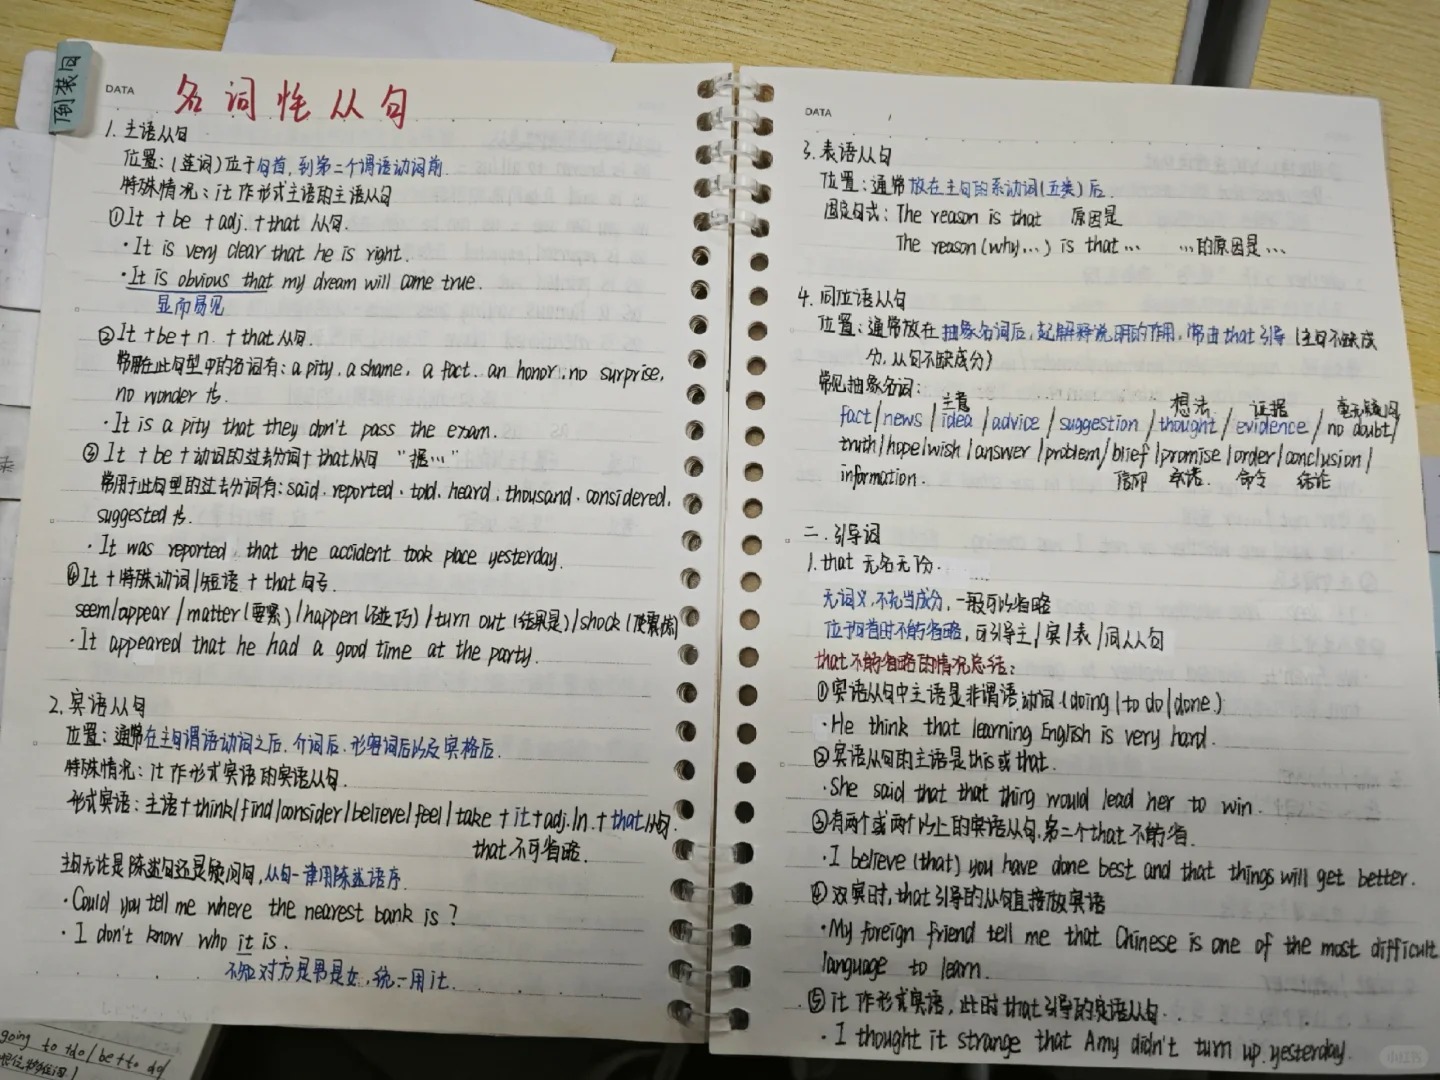 倒装句
DATA
名词性从句
1. 主语从句
位置：(连词)位于句首，到第二个谓语动词前.
特殊情况：it 作形式主语的主语从句
①It + be + adj. + that 从句.
·It is very clear that he is right.
·It is obvious that my dream will come true.
显而易见
②It +be+n. +that从句.
常用在此句型中的名词有：a pity, a shame, a fact. an honor. no surprise,
no wonder 等.
·It is a pity that they don't pass the exam.
③ It + be +动词的过去分词+that从句 "据…"
常用于此句型的过去分词有：said. reported. told. heard. thousand. considered.
suggested 等.
·It was reported that the accident took place yesterday.
④It +特殊动词/短语 + that 句子.
seem/appear / matter(要紧) / happen(碰巧) / turn out (结果是)/shock (使震惊)
·It appeared that he had a good time at the party.
2. 宾语从句
位置：通常在主句谓语动词之后. 介词后. 形容词后以及宾格后.
特殊情况：it 作形式宾语的宾语从句.
形式宾语：主语+think/find/consider/believe/feel/take + it+adj./n. + that从句.
that 不可省略.
主句无论是陈述句还是疑问句, 从句一律用陈述语序.
·Could you tell me where the nearest bank is ?
· I don't know who it is.
不知对方是男是女, 统一用it.
going to do/be+to do/
DATA
3. 表语从句
位置：通常放在主句的系动词(五类)后.
固定句式：The reason is that 原因是
The reason (why...) is that... ...的原因是...
4. 同位语从句
位置：通常放在抽象名词后, 起解释说明的作用, 常由that引导 (主句不缺成
分, 从句不缺成分)
常见抽象名词：
主意 想法 证据 毫无疑问
fact/news /idea /advice /suggestion /thought / evidence / no doubt/
truth/hope/wish /answer /problem/blief /promise /order/conclusion/
information. 信仰 承诺. 命令 结论
二. 引导词
1. that 无名无份.
无词义, 不充当成分, 一般可以省略
位于句首时不能省略, 可引导主/宾/表/同从句
that不能省略的情况总结：
①宾语从句中主语是非谓语动词.(doing/to do/done)
·He think that learning English is very hard.
②宾语从句的主语是this或that.
·She said that that thing would lead her to win.
③有两个或两个以上的宾语从句, 第二个that 不能省.
·I believe (that) you have done best and that things will get better.
④双宾时, that引导的从句直接放宾语
·My foreign friend tell me that Chinese is one of the most difficult
language to learn.
⑤it 作形式宾语, 此时that引导的宾语从句.
· I thought it strange that Amy didn't turn up yesterday.
小红书